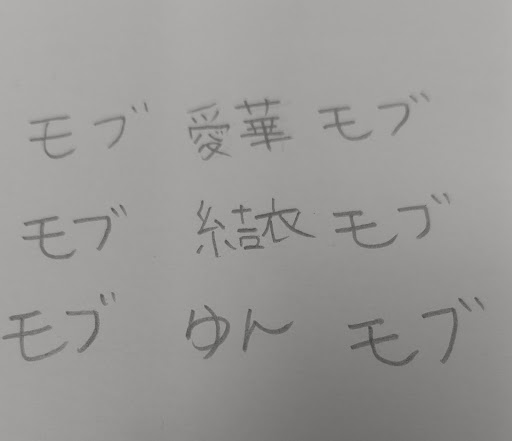 モブ 愛華 モブ
モブ 結衣 モブ
モブ ゆん モブ